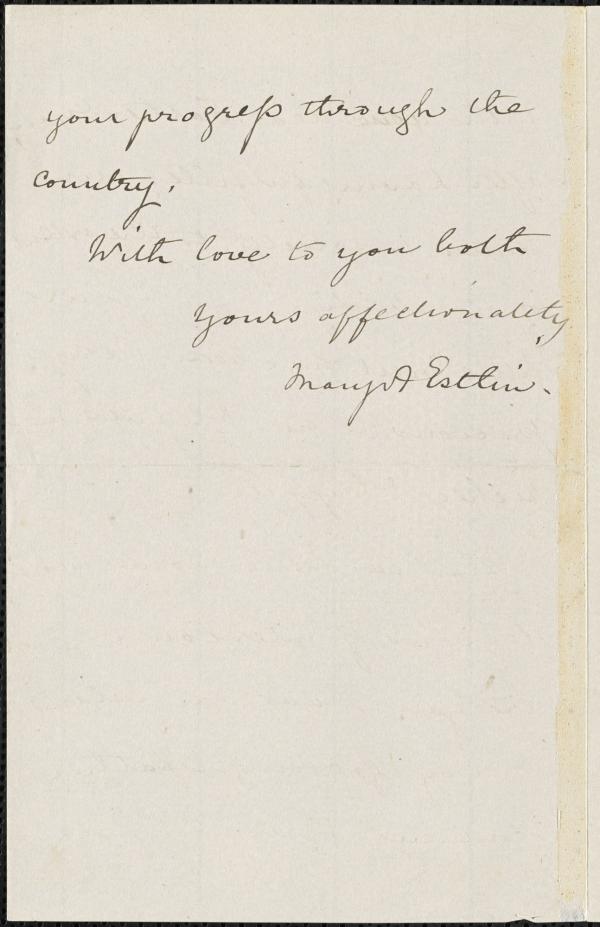 your progress through the
country.
With love to you both
yours affectionately,
Mary A Estlin.